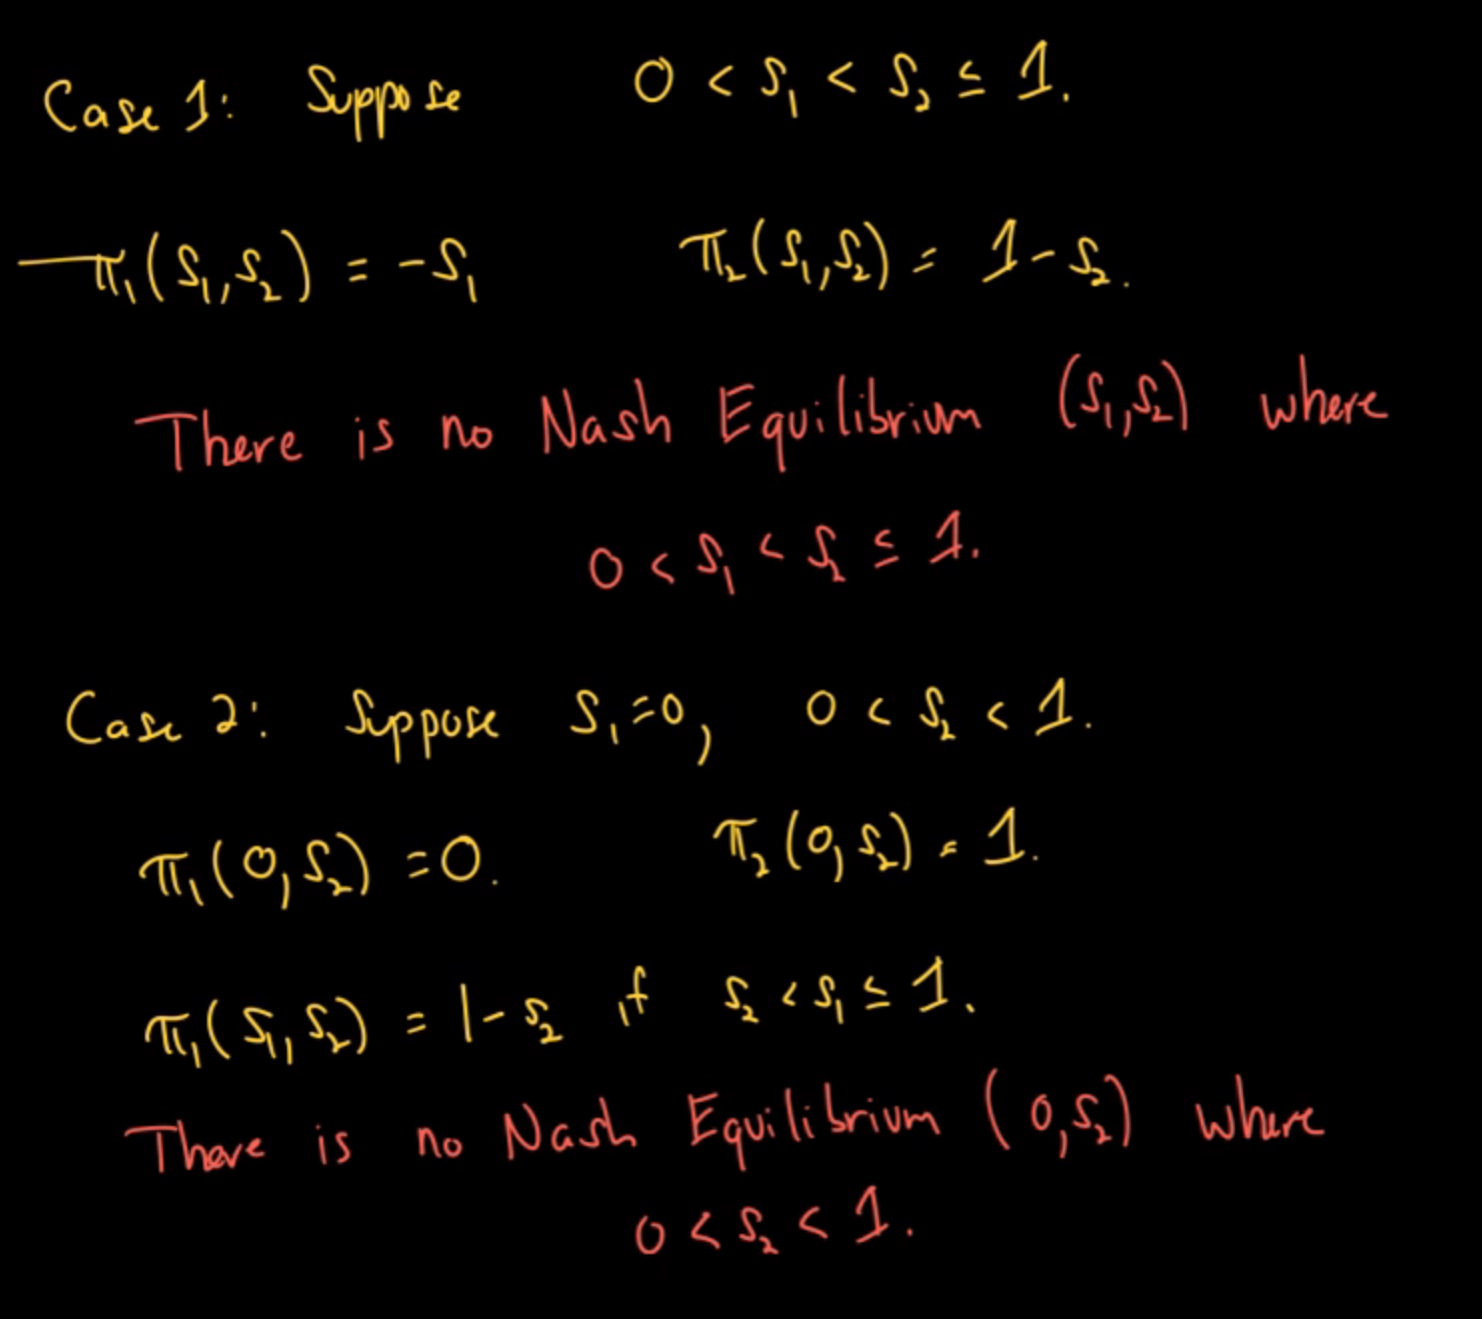 Case 1: Suppose 0 < S₁ < S₂ ≤ 1.
π₁(S₁,S₂) = -S₁ π₂(S₁,S₂) = 1-S₂.
There is no Nash Equilibrium (S₁,S₂) where
0 < S₁ < S₂ ≤ 1.
Case 2: Suppose S₁=0, 0 < S₂ < 1.
π₁(0,S₂) = 0. π₂(0,S₂) = 1.
π₁(S₁,S₂) = 1-S₂ if S₂ < S₁ ≤ 1.
There is no Nash Equilibrium (0,S₂) where
0 < S₂ < 1.